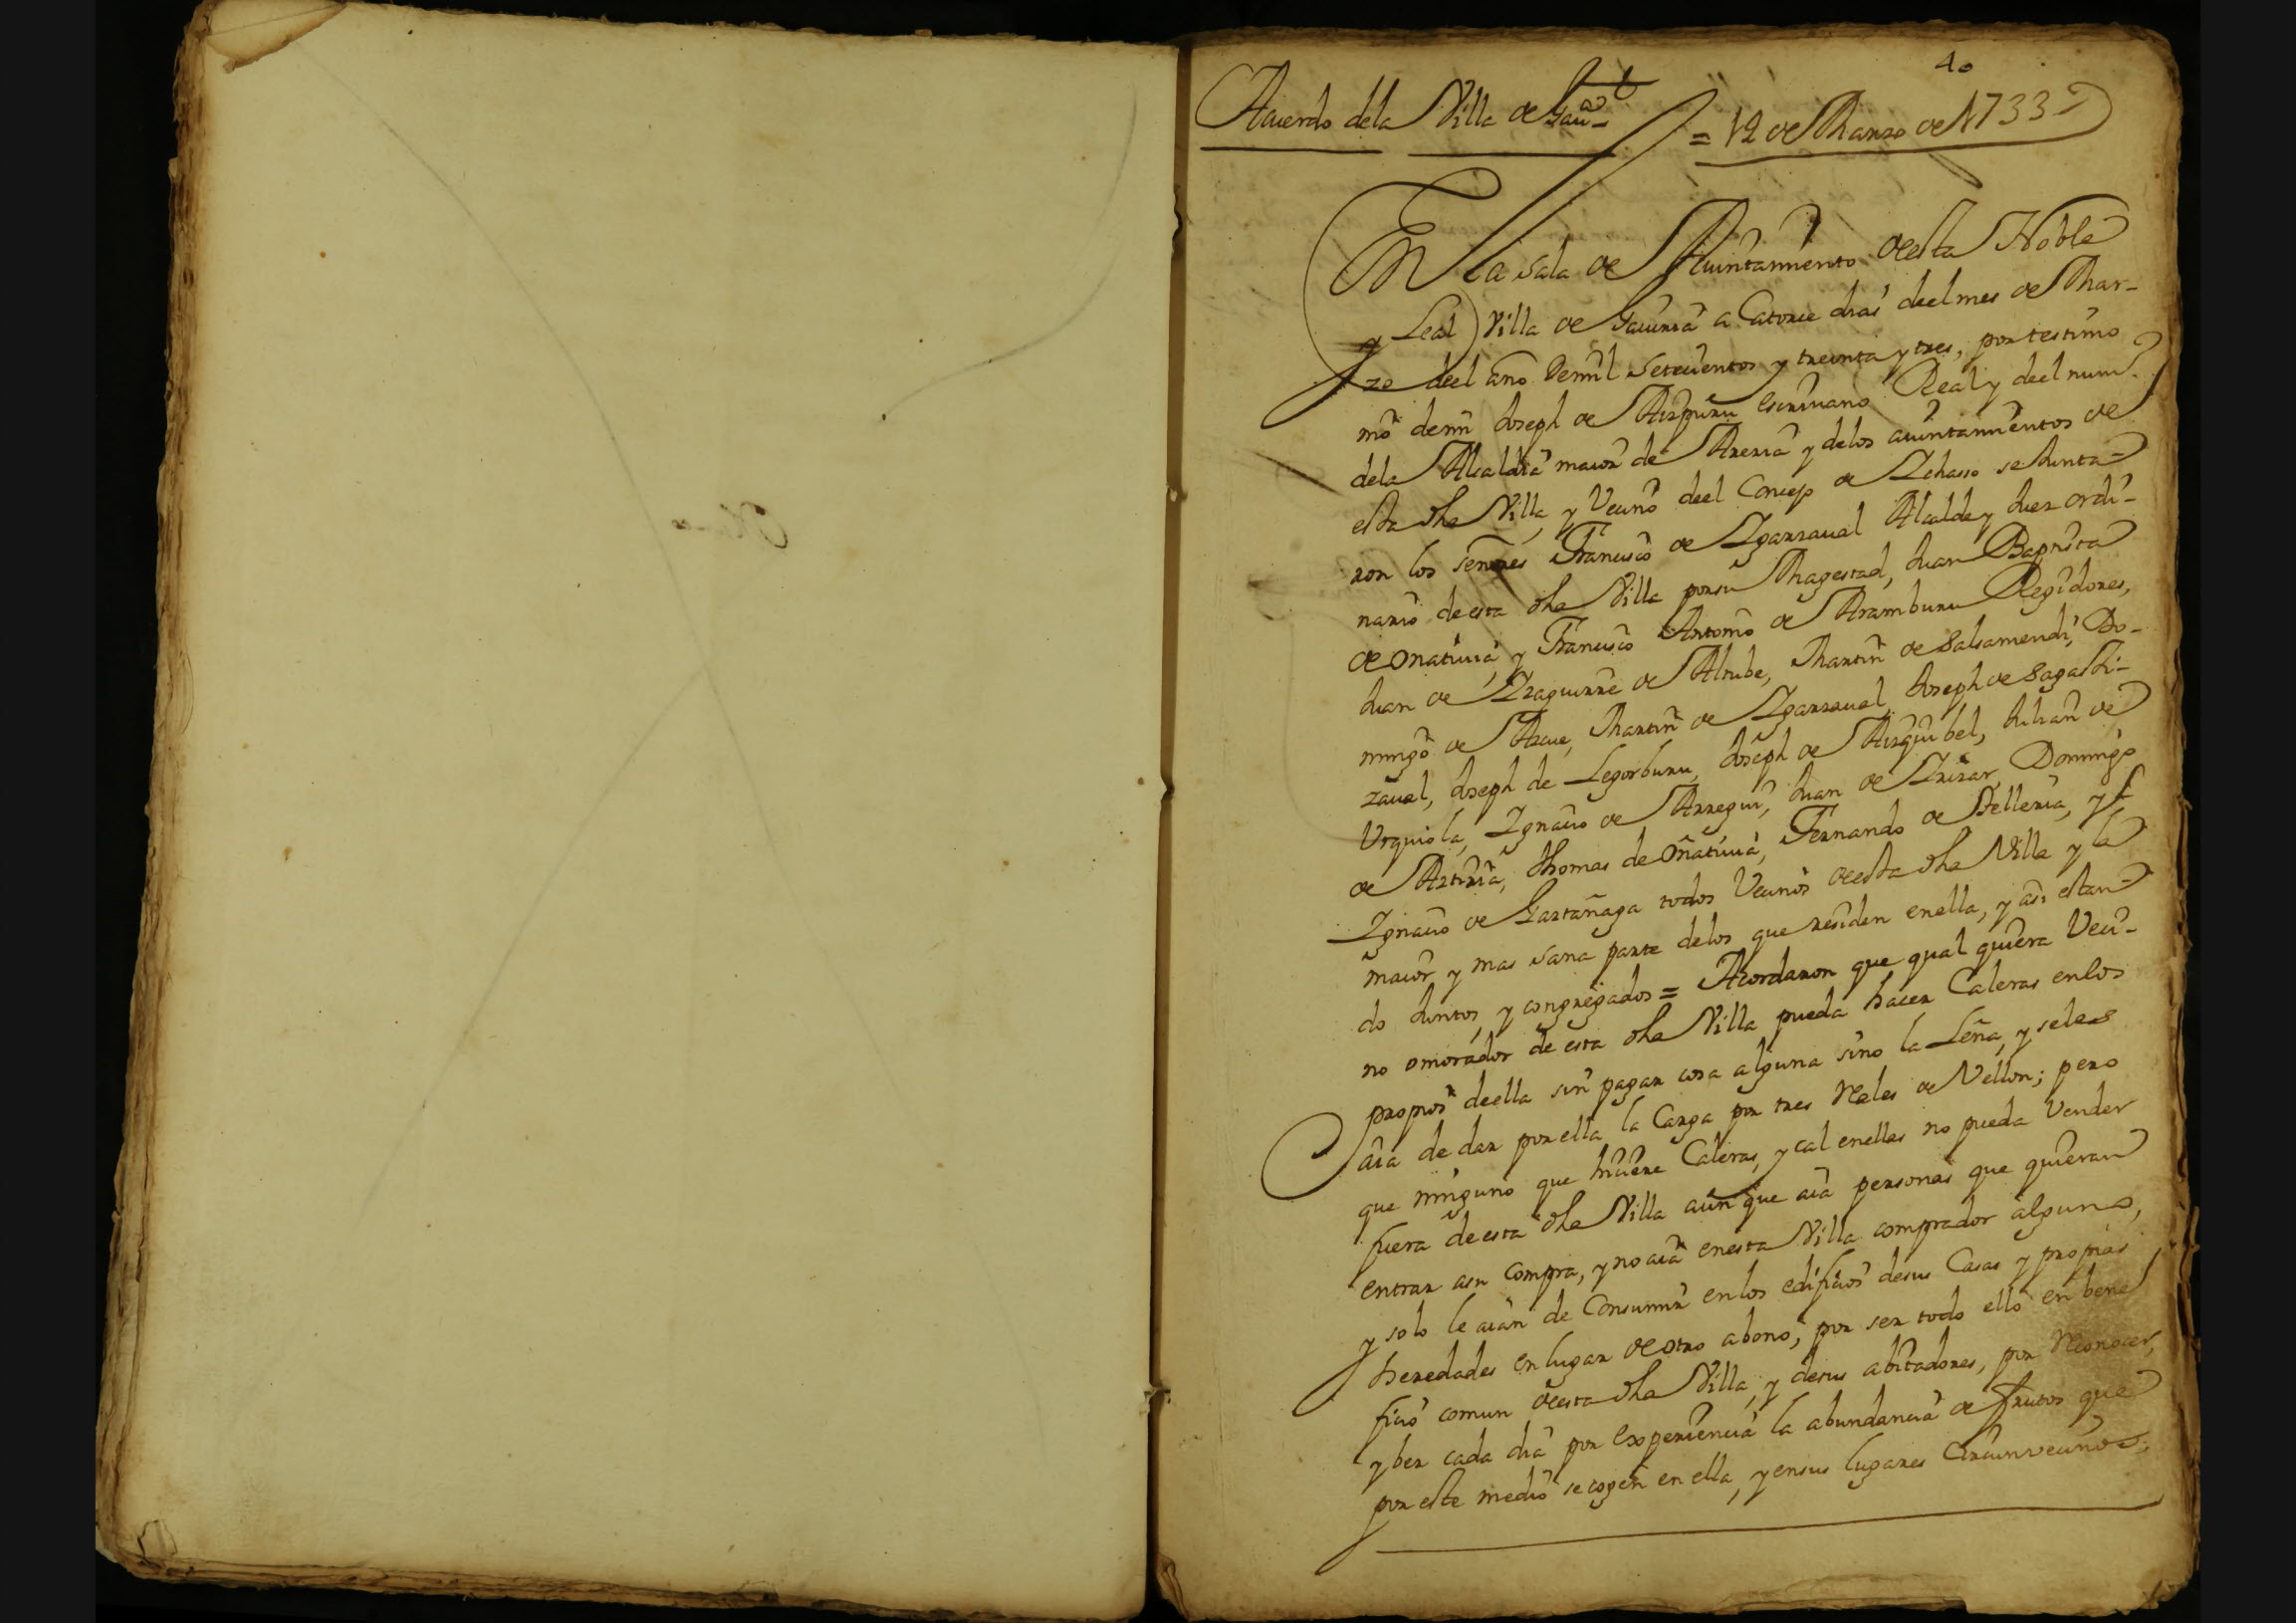 40
Acuerdo dela Villa de Gavª = 12 de Marzo de 1733
En la sala de Aiuntamiento de esta Noble
y Leal Villa de Gauiria a Catorce dias deel mes de Mar-
zo deel año de mil Setecientos y treinta y tres, por testimo
mō de mi Joseph de Aizpuru escriuano Real y deel num.º
dela Alcaldia maior de Areria y delos aiuntamientos de
esta dha Villa, y Vecino deel Concejo de Ichasso se Junta-
ron los señores Francisco de Igarzaual Alcalde y Juez ordi-
nario de esta dha Villa por su Magestad, Juan Baptista
de Oñatiuia, y Francisco Antonio de Aramburu Regidores,
Juan de Izaguirre de Altube, Martin de Salsamendi, Do-
mingo de Azcue, Martin de Igarzaual, Joseph de Sagasti-
zaual, Joseph de Legorburu, Joseph de Aizquibel, Julian de
Urquiola, Ignacio de Arregui, Juan de Irizar, Domingo
de Artiria, Thomas de Oñatiuia, Fernando de Telleria, y
Ignacio de Gartañaga todos Vecinos de esta dha Villa y la
maior y mas sana parte delos que residen enella, y asi estan-
do Juntos, y congregados = Acordaron que qual quiera Veci-
no o morador de esta dha Villa pueda hacer Caleras enlos
propios deella sin pagar cosa alguna sino la Leña, y seles
aia de dar por ella la Carga por tres Reales de Vellon; pero
que ninguno que hiciere Caleras, y cal enellas no pueda Vender
fuera de esta dha Villa aunque aia personas que quieran
entrar asu compra, y no aia enesta Villa comprador alguno,
y solo le aian de Consumir enlos edificios desus Casas y propias
heredades en lugar de otro abono, por ser todo ello en bene
ficio comun de esta dha Villa, y desus abitadores, por Reconocer,
y ber cada dia por experiencia la abundancia de frutos que
por este medio se cogen en ella, y ensus lugares Circunvecinos.